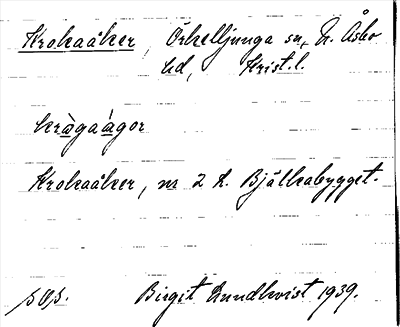 Krokaåker, Örkelljunga sn, N. Åsbo
hd, Krist. l.
kràgaágor
Krokaåker, nr 2 t. Bjälkabygget.
Birgit Lundkvist 1939.